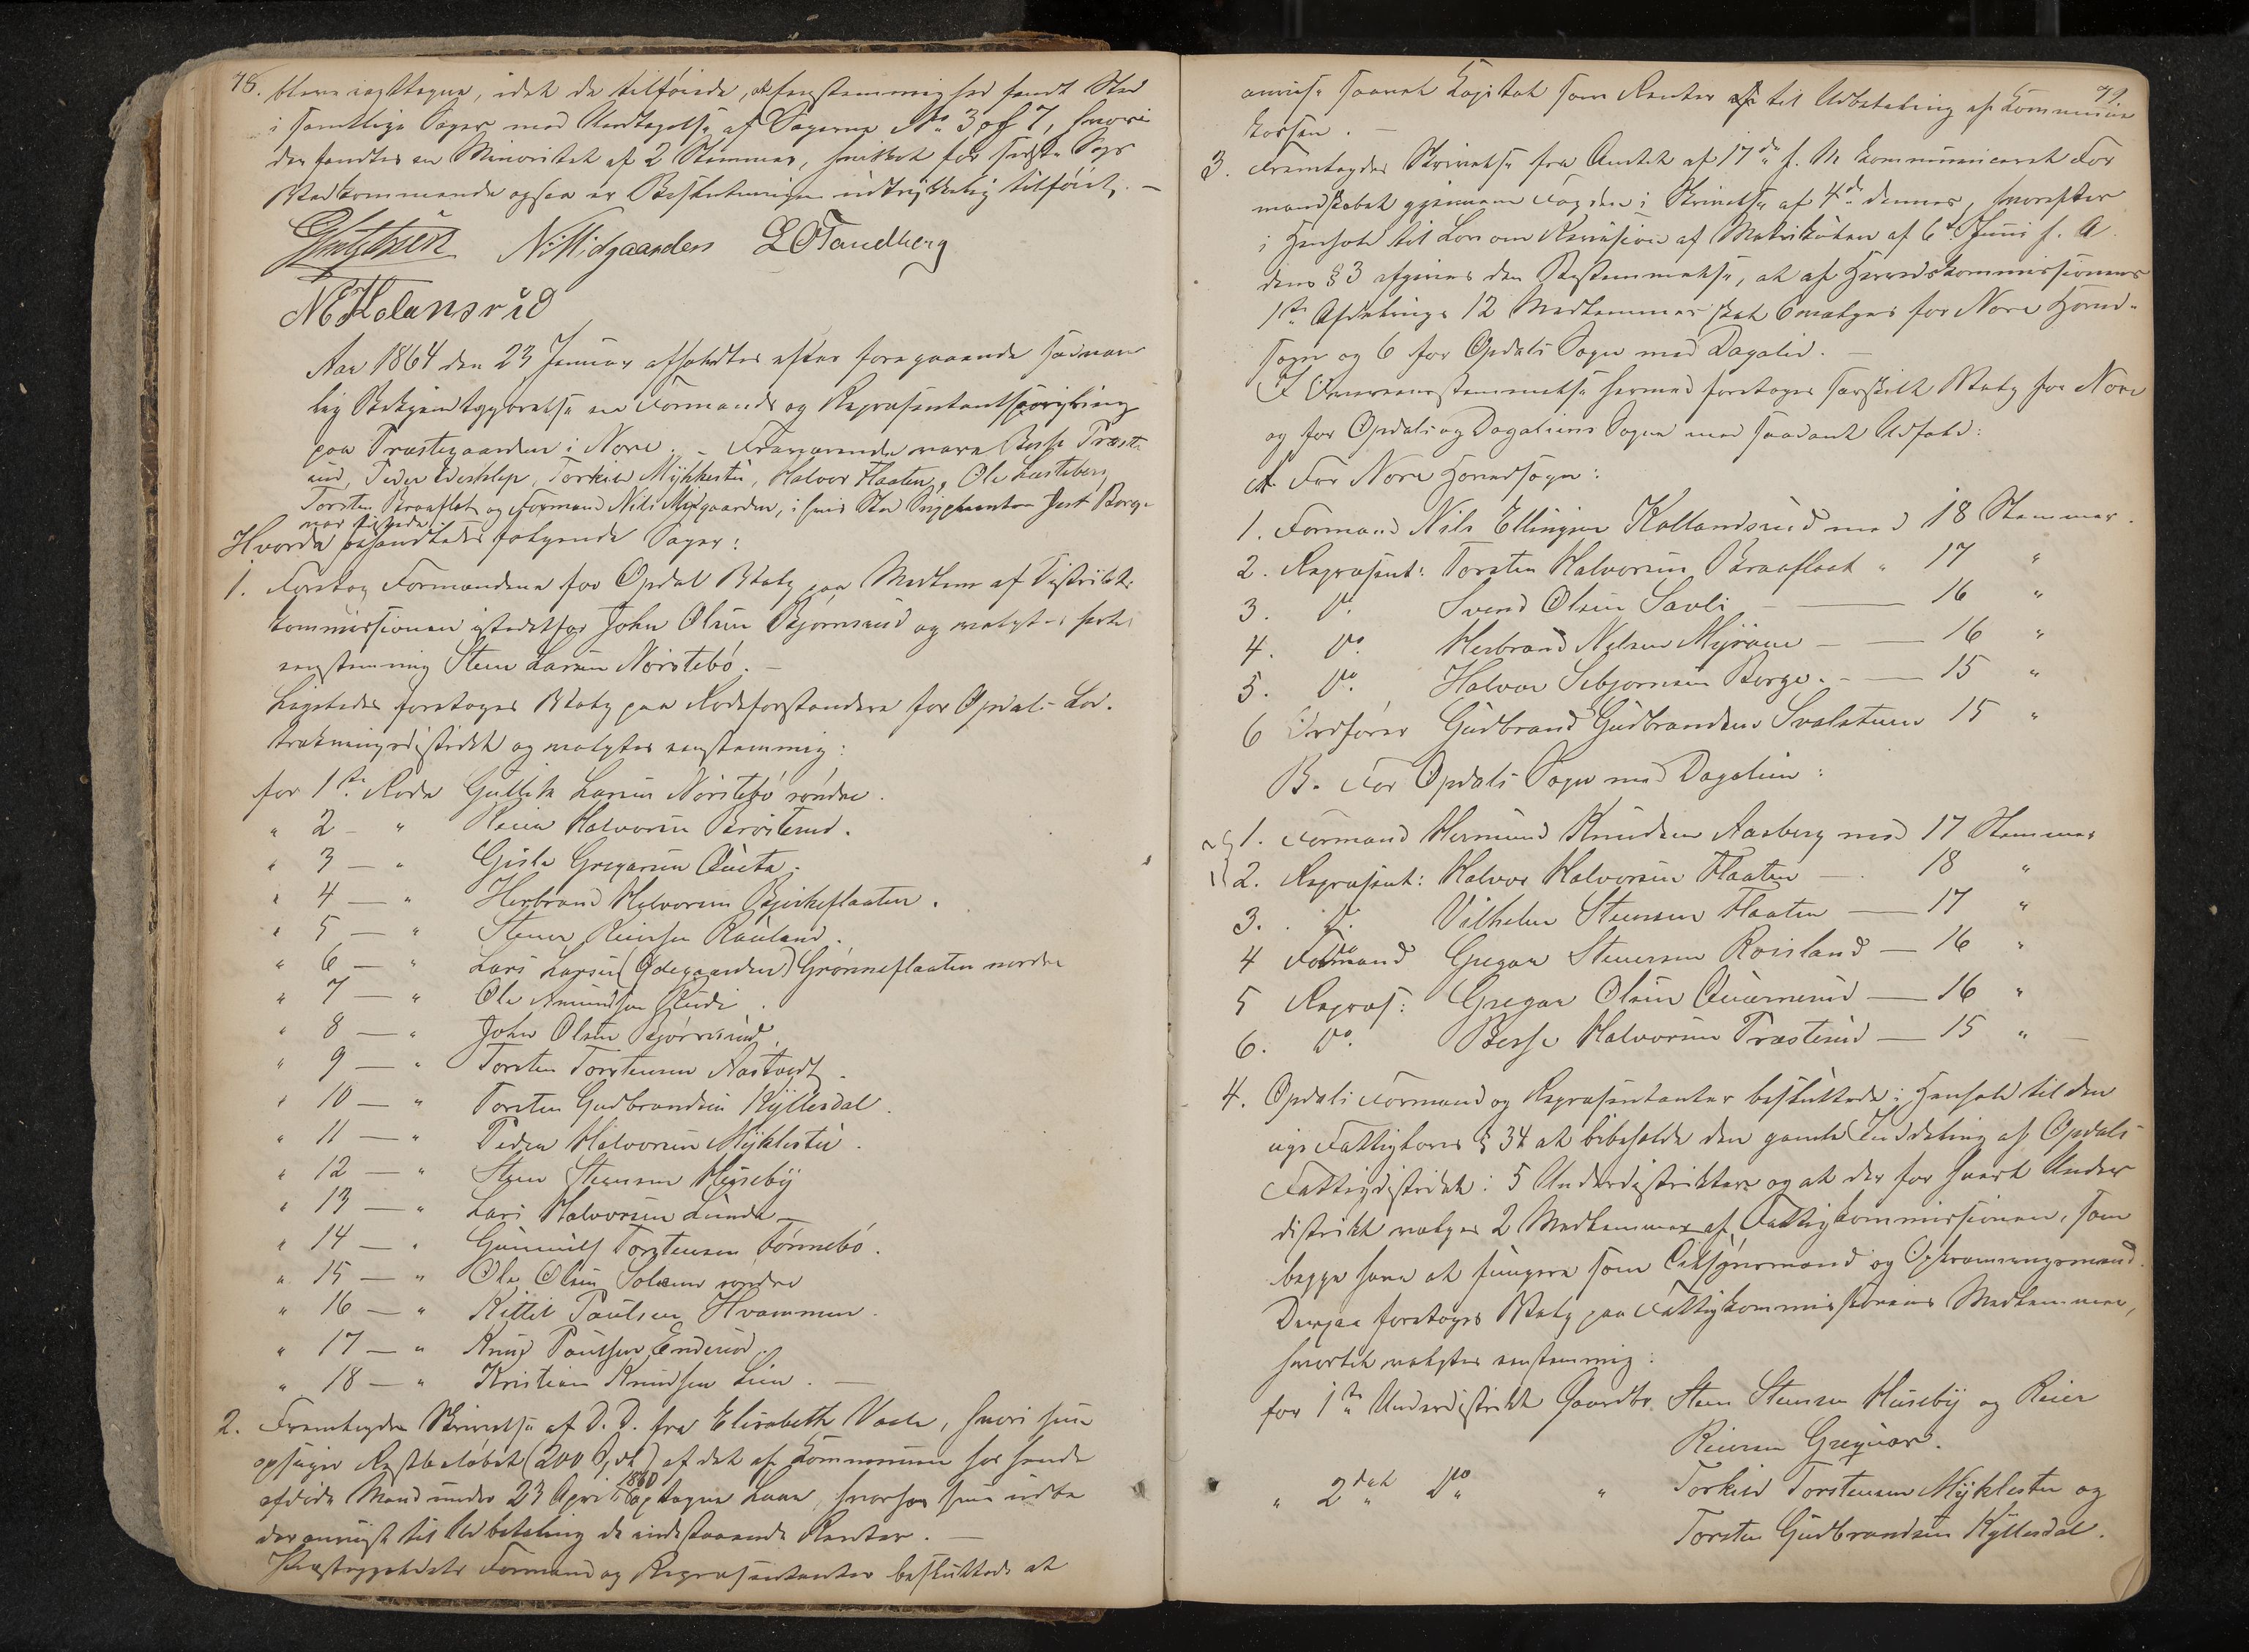 78.
bleve iagttagne, idet da tilføiede, at Eenstemmighed fandt Sted
i samtlige Sager med Undtagelse af Sagerne No 3 og 7, hvori
der fandtes en Minoritet af 2 Stemmer, hvilket for sidste Sags
Vedkommende ogsaa er Beslutningen udtrykkelig tilføiet. —
N. Midgaarden L O Tandberg
N E Kolansrud
Aar 1864 den 23 Januar afholdtes efter foregaaende sædvan-
lig Bekjendtgjørelse en Formands og Repræsentantskabs
paa Præstegaarden i Nore. – Fraværende vare Besse Præste-
rud, Peder Torkild Mykkestu, Halvor Flaaten, Ole
Torsten Braaflat og Formand Nils Midgaarden, i hvis Sted Supleanten Just Borge
var tilstede
Hvorda behandledes følgende Sager:
1. Foretog Formændene for Opdal Valg paa Medlem af Distrikts-
kommissionen istedetfor John Olsen Bjørnsrud og valgtes
eenstemmig Steen Larsen Nørstebø. –
Ligeledes foretoges Valg paa Rodeforstandere for Opdals
trækningsdistrikt og valgtes eenstemmig:
for 1ste Rode Gullik Larsen Nørstebø søndre.
" 2 – " Reier Halvorsen Brøsterud.
" 3 – " Gisle Gregarsen Qusta.
" 4 – " Herbrand Halvorsen Bjerkeflaaten.
" 5 – " Stener Reiersen Rauland.
" 6 – " Lars Larsen (Ødegaarden) Grønneflaaten nordre
" 7 – " Ole Amundsen Rudi.
" 8 – " John Olsen Bjørnsrud.
" 9 – " Torsten Torstensen Aastvedt.
" 10 – " Torsten Gudbrandsen Kyllesdal.
" 11 – " Peder Halvorsen Myklestu.
" 12 – " Steen Steensen Huseby
" 13 – " Lars Halvorsen Lunde –
" 14 – " Gunnulf Torstensen Tønnebø.
" 15 – " Ole Olsen Solem søndre
" 16 – " Kittil Paulsen Hvammen.
" 17 – " Knud Paulsen Enderud.
" 18 – " Kristian Knudsen Lien. —
2. Fremlagdes Skrivelse af D. D. fra Elisabeth Vasle, hvori hun
opsiger Restbeløbet (200 Spd) af det af Kommunen hos hendes
afdøde Mand under 23 April 1860 optagne Laan, hvorhos hun udbe-
der anvist til Udbetaling de indestaaende Renter. —
Præstegjeldets Formænd og Repræsentanter besluttede at
79
anvise saavel Kapital som Renter til Udbetaling af Kommune-
kassen. —
3. Fremlagdes Skrivelse fra Amtet af 17de f. M. kommuniceret For-
mandskabet gjennem Fogden i Skrivelse af 4de dennes, hvorefter
i Henhold til Lov om Revision af Matrikulen af 6te Juni f. A.
dens §3 afgives den Bestemmelse, at af Herredskommissionens
1ste Afdelings 12 Medlemmer skal 6 vælges for Nore Hoved-
sogn og 6 for Opdals Sogn med Dagalid. —
I Overeensstemmelse hermed foretoges særskilt Valg for Nore
og for Opdals og Dagaliens Sogne med saadant Udfald:
A. For Nore Hovedsogn:
1. Formand Nils Ellingsen Kollandsrud med 18 Stemmer.
2. Repræsent: Torsten Halvorsen Braaflaat " 17 "
3. Do. Svend Olsen Savli — 16 "
4. Do. Herbrand Nilsen Myrane — 16 "
5. Do. Halvor Sebjørnsen Borge. — 15 "
6 Ordfører Gudbrand Gudbrandsen Svalatuen 15 "
B. For Opdals Sogn med Dagalien:
1. Formand Hermund Knudsen Aasberg med 17 Stemmer
2. Repræsent: Halvor Halvorsen Flaaten — 18 "
3. Do. Vilhelm Steensen Flaaten — 17 "
4 Formand Gregar Steensen Roisland — 16 "
5 Repræs: Gregar Olsen Qværnerud — 16 "
6. Do. Besse Halvorsen Præsterud — 15 " —
4. Opdals Formænd og Repræsentanter besluttede i Henhold til den
nye Fattiglovs § 34 at bibeholde den gamle Inddeling af Opdals
Fattigdistrikt i 5 Underdistrikter og at der for hvert Under-
distrikt vælges 2 Medlemmer af Fattigkommissionen, som
begge have at fungere som Tilsynsmand og Opkrævningsmænd.
Derpaa foretoges Valg paa Fattigkommissionens Medlemmer,
hvortil valgtes eenstemmig:
for 1ste Underdistrikt Gaardbr. Steen Steensen Huseby og Reier
Reiersen Greguar.
" 2det Do " Torkild Torstensen Myklestu og
Torsten Gudbrandsen Kyllesdal.